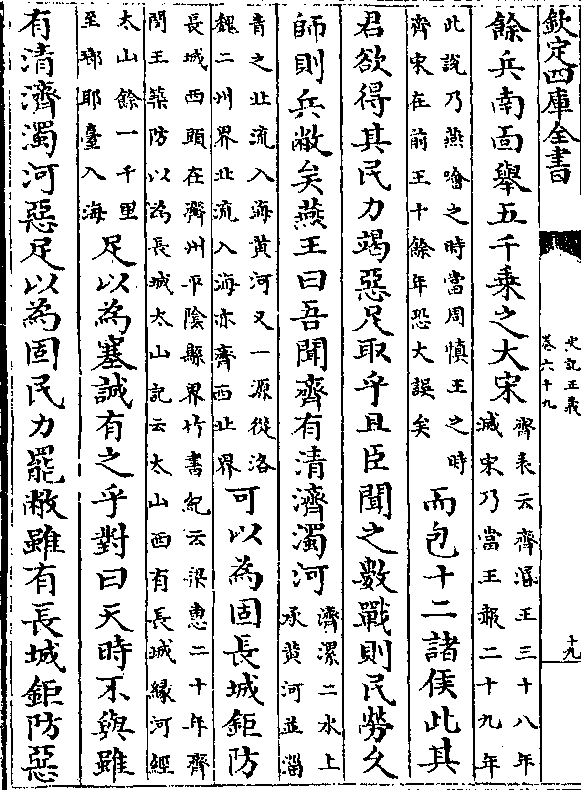 欽定四庫全書
史記正義
卷六十九
十九
餘兵南面舉五千乗之大宋
齊表云齊湣王三十八年
滅宋乃當王赧二十九年
此說乃燕噲之時當周慎王之時
齊宋在前王十餘年恐大誤矣
而包十二諸侯此其
君欲得其民力竭惡足取乎且臣聞之數戰則民勞久
師則兵敝矣燕王曰吾聞齊有清濟濁河
濟漯二水上
承黃河並淄
青之北流入海黃河又一源從洛
魏二州界北流入海亦齊西北界
可以為固長城鉅防
長城西頭在濟州平陰縣界竹書紀云梁惠二十年齊
閔王築防以為長城太山記云太山西有長城緣河經
太山餘一千里
至瑯耶臺入海
足以為塞誠有之乎對曰天時不與雖
有清濟濁河惡足以為固民力罷敝雖有長城鉅防惡